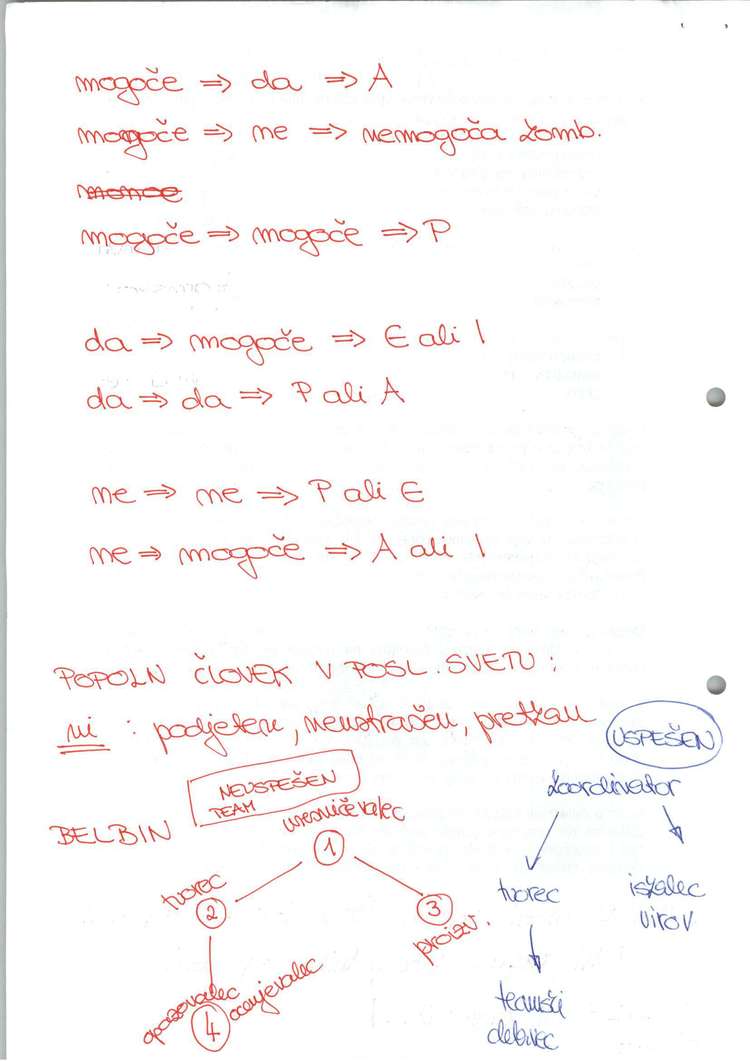 mogoče => da => A
mogoče => ne => nemogoča komb.
mogoče => mogoče => P
da => mogoče => E ali I
da => da => P ali A
ne => ne => P ali E
ne => mogoče => A ali I
POPOLN ČLOVEK V POSL. SVETU:
ni : podjeten, neustrašen, pretkan
USPEŠEN
NEUSPEŠEN
TEAM
koordinator
uresničevalec
BELBIN
1
tvorec
2
3
proizv.
tvorec
iskalec
virov
opazovalec
ocenjevalec
4
teamski
delavec